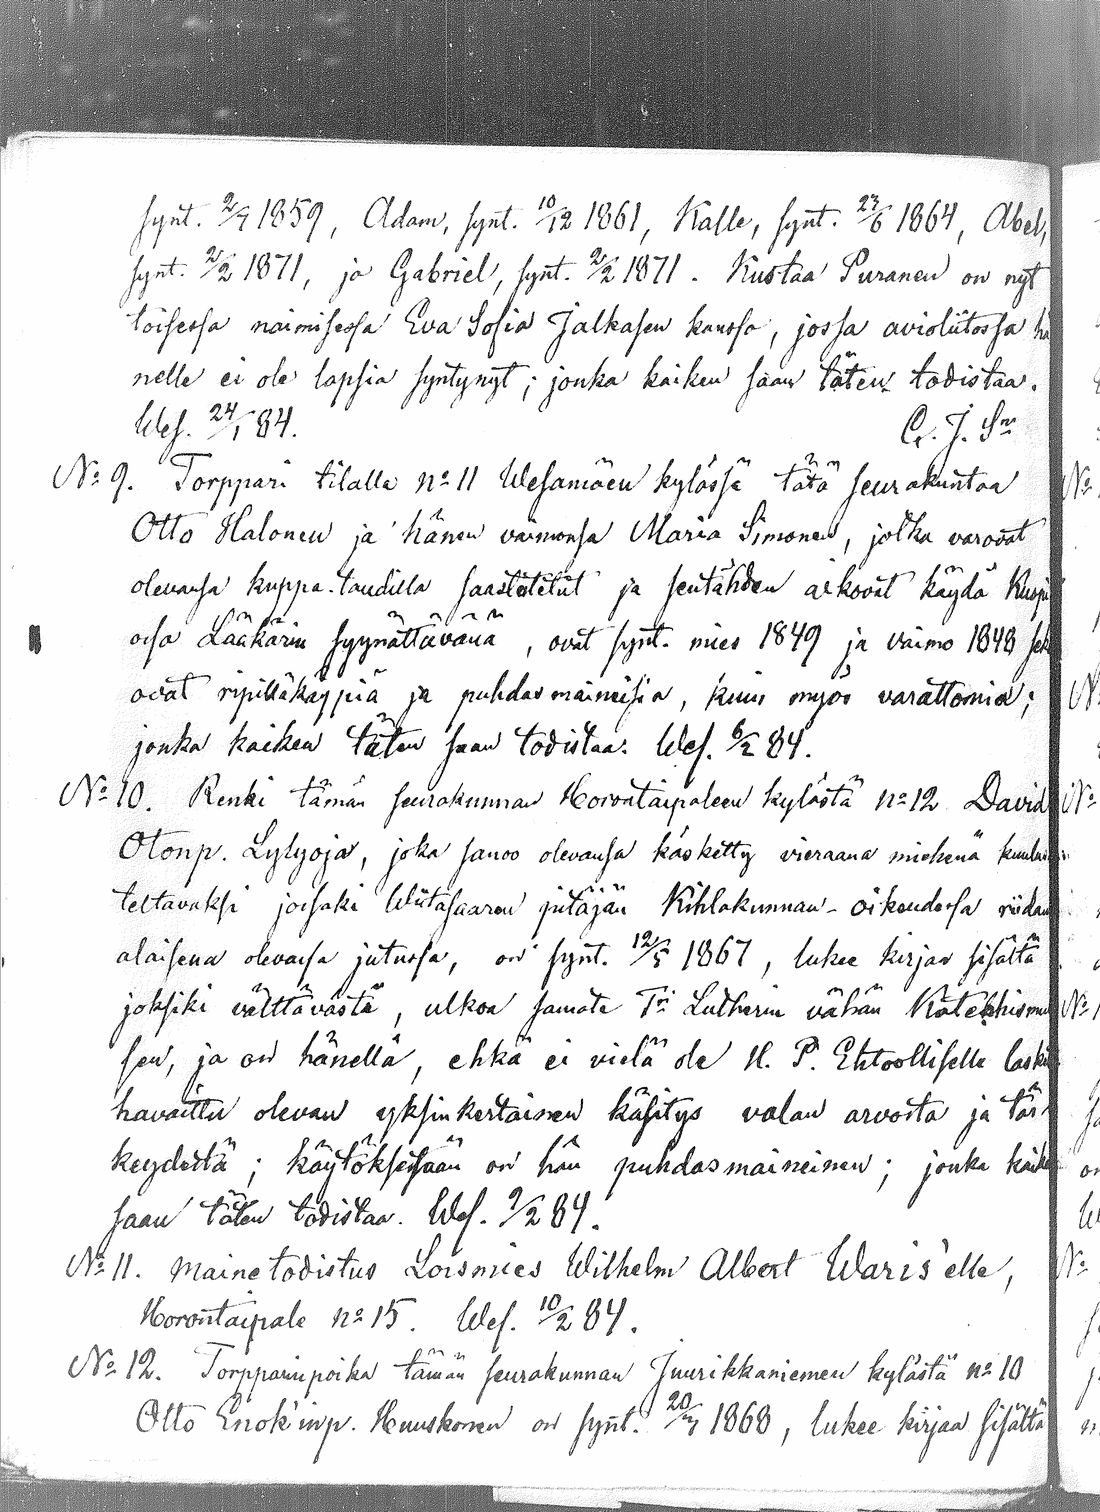 synt. 2/7 1859, Adam, synt. 10/12 1861, Kalle, synt. 23/6 1864, Abel,
synt. 2/2 1871, ja Gabriel, synt. 2/2 1871. Kustaa Puranen on nyt
toisessa naimisessa Eva Sofia Jalkasen kanssa, jossa avioliitossa hä
nelle ei ole lapsia syntynyt; jonka kaiken saan täten todistaa.
Wes. 24/1 84.
No 9. Torppari tilalla no 11 Wesamäen kylässä tätä seurakuntaa
Otto Halonen ja hänen vaimonsa Maria Simonen, jotka varovat
olevansa kuppa-taudilla saastutetut ja sentähden aikovat käydä Kuopi
ossa Lääkärin syynättävänä, ovat synt. mies 1849 ja vaimo 1848 sek
ovat ripilläkäypiä ja puhdasmaineisia, kuin myös varattomia;
jonka kaiken täten saan todistaa. Wes. 6/2 84.
No 10. Renki tämän seurakunnan Horontaipaleen kylästä no 12 David
Otonp. Lylyoja, joka sanoo olevansa käsketty vieraana miehenä kuulus
teltavaksi jossaki Wiitasaaren pitäjän Kihlakunnan-oikeudessa riidan
alaisena olevassa jutussa, on synt. 12/5 1867, lukee kirjan sisältä
joksiki välttävästi, ulkoa samate Tri Lutherin vähän Katekhismu
sen, ja on hänellä, ehkä ei vielä ole H. P. Ehtoolliselle laski
havaittu olevan yksinkertainen käsitys valan arvosta ja tär-
keydestä; käytöksessään on hän puhdasmaineinen; jonka kaike
saan täten todistaa. Wes. 9/2 84.
No 11. Mainetodistus Loismies Wilhelm Albert Waris'elle,
Horontaipale no 15. Wes. 10/2 84.
No 12. Torpparinpoika tämän seurakunnan Juurikkaniemen kylästä no 10
Otto Enok'inp. Huuskonen on synt. 20/7 1868, lukee kirjaa sisältä